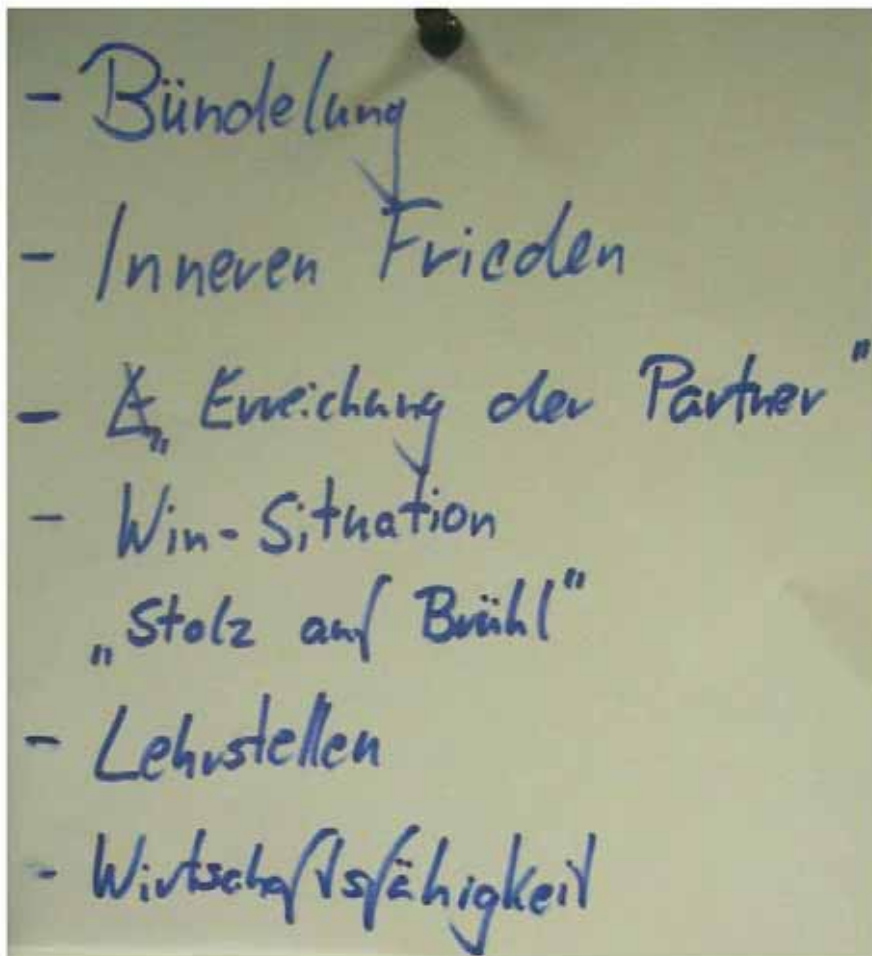 - Bündelung
- Inneren Frieden
- „Erreichung der Partner"
- Win-Situation
„Stolz auf Brühl"
- Lehrstellen
- Wirtschaftsfähigkeit